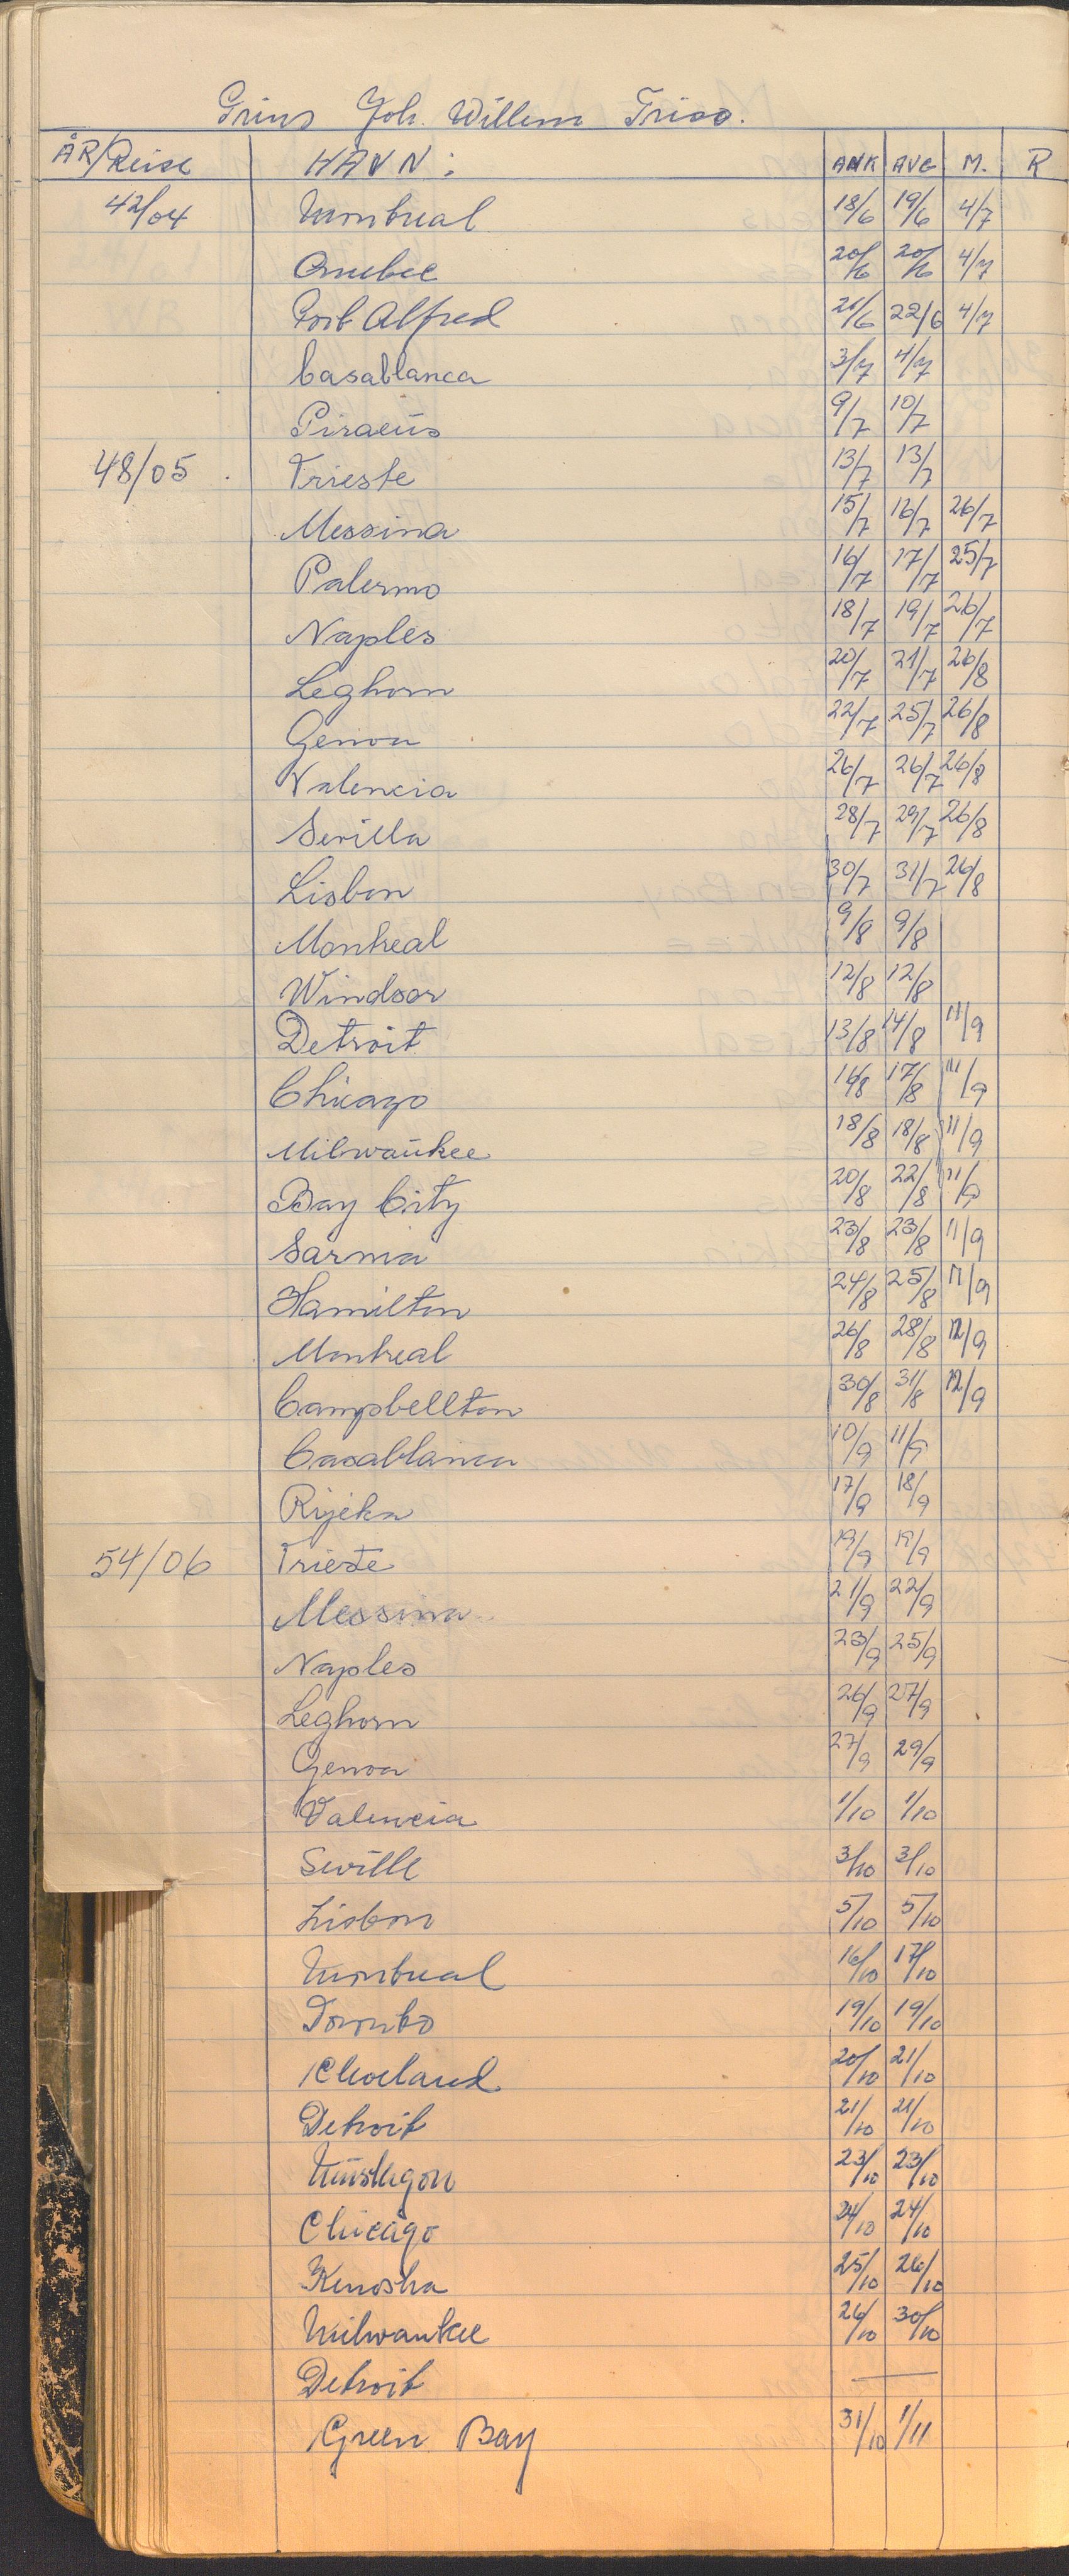 Prins Joh. Willem Friso.
ÅR/Reise HAVN: ANK AVG M. R
42/04 Montreal 18/6 19/6 4/7
Quebec 20/6 20/6 4/7
Port Alfred 21/6 22/6 4/7
Casablanca 3/7 4/7
Piraeus 9/7 10/7
48/05 Trieste 13/7 13/7
Messina 15/7 16/7 26/7
Palermo 16/7 17/7 25/7
Naples 18/7 19/7 26/7
Leghorn 20/7 21/7 26/8
Genoa 22/7 25/7 26/8
Valencia 26/7 26/7 26/8
Sevilla 28/7 29/7 26/8
Lisbon 30/7 31/7 26/8
Montreal 9/8 9/8
Windsor 12/8 12/8
Detroit 13/8 14/8 11/9
Chicago 16/8 17/8 11/9
Milwaukee 18/8 18/8 11/9
Bay City 20/8 22/8 11/9
Sarnia 23/8 23/8 11/9
Hamilton 24/8 25/8 11/9
Montreal 26/8 28/8 12/9
Campbellton 30/8 31/8 12/9
Casablanca 10/9 11/9
Rijeka 17/9 18/9
54/06 Trieste 19/9 19/9
Messina 21/9 22/9
Naples 23/9 25/9
Leghorn 26/9 27/9
Genoa 27/9 29/9
Valencia 1/10 1/10
Seville 3/10 3/10
Lisbon 5/10 5/10
Montreal 16/10 17/10
Toronto 19/10 19/10
Cleveland 20/10 21/10
Detroit 21/10 21/10
Muskegon 23/10 23/10
Chicago 24/10 24/10
Kenosha 25/10 26/10
Milwaukee 26/10 30/10
Detroit —
Green Bay 31/10 1/11